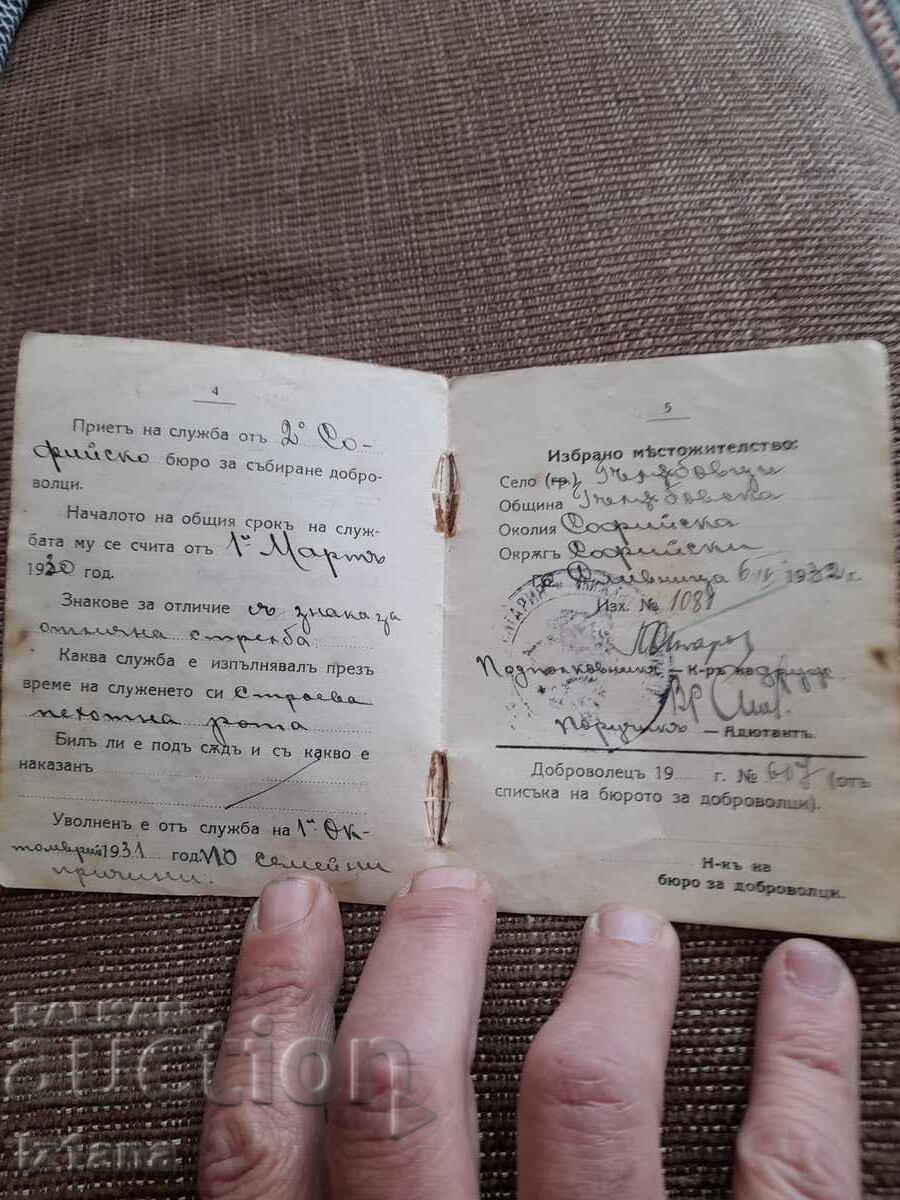 4
Приетъ на служба отъ 2о Со-
фийско бюро за събиране добро-
волци.
Началото на общия срокъ на служ-
бата му се счита отъ 1й Мартъ
1930 год.
Знакове за отличие съ знака за
отлична стрелба
Каква служба е изпълнявалъ презъ
време на служенето си Строева
пехотна рота
Билъ ли е подъ сѫдъ и съ какво е
наказанъ
Уволненъ е отъ служба на 1й Ок-
томврий 1931 год. по семейни
причини.
5
Избрано мѣстожителство:
Село (гр.)
Община
Околия Софийска
Окрѫгъ Софийски
Гр. Сливница 6 IV 1932 г.
Изх. № 1081
Подполковникъ — К-ръ на
Поручикъ — Адютантъ.
Доброволецъ 19 г. № 607 (отъ
списъка на бюрото за доброволци).
Н-къ на
бюро за доброволци.
BALKAN
auction
iziana